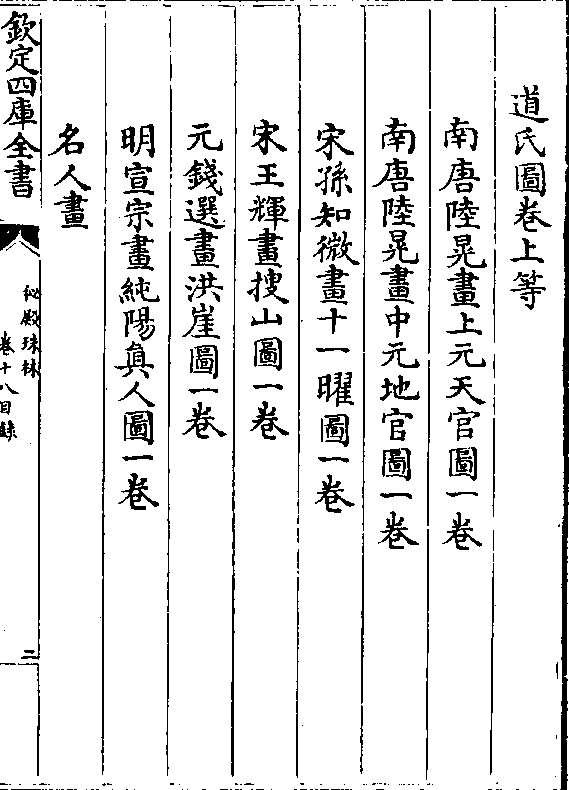 道氏圖卷上等
南唐陸晃畫上元天官圖一卷
南唐陸晃畫中元地官圖一卷
宋孫知微畫十一曜圖一卷
宋王輝畫搜山圖一卷
元錢選畫洪崖圖一卷
明宣宗畫純陽真人圖一卷
名人畫
欽定四庫全書
秘殿珠林
卷十八目錄
二